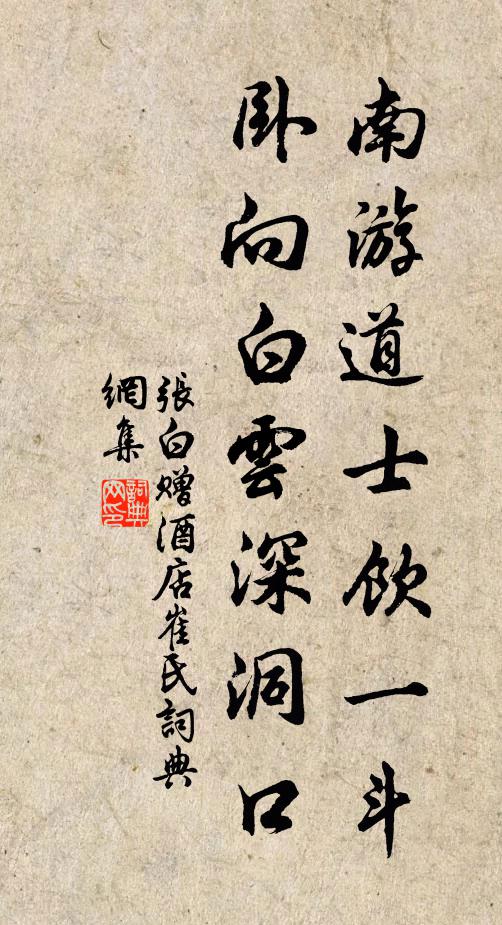 南游道士饮一斗
卧向白雲深洞口
張白赠酒店崔氏詞典
網集
詞典
网印